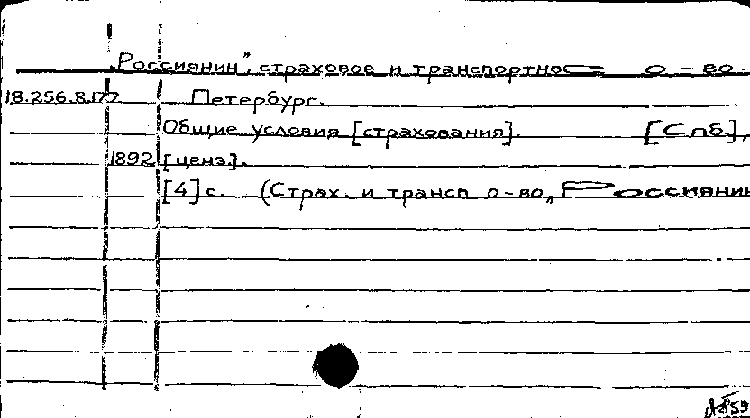 „Россиянин”, страховое и транспортное о-во.
18.256.8.177 Петербург.
Общие условия [страхования]. [Спб],
1892 [ценз].
[4] с. (Страх. и трансп о-во „Россиянин